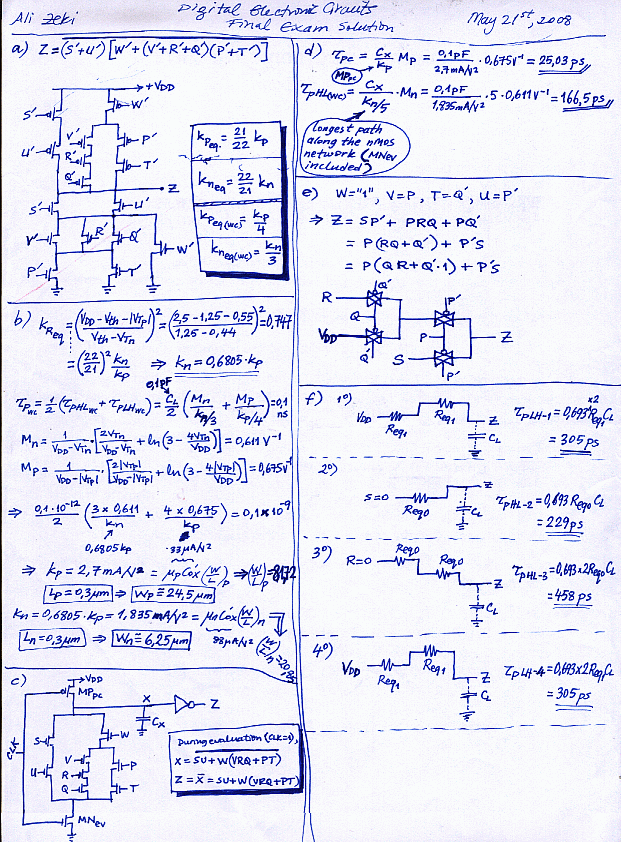 Ali Zeki
Digital Electronic Circuits
Final Exam Solution
May 21st, 2008
a) Z = (S'+U') [W' + (V'+R'+Q')(P'+T')]
+VDD
S'
W'
U'
V'
R'
Q'
P'
T'
Z
S'
U'
V'
R'
Q'
W'
P'
T'
kPeq. = 21/22 kp
kneq = 22/21 kn
kPeq(wc) = kp/4
kneq(wc) = kn/3
b) kReq = ((VDD - Vth - |VTp|)/(Vth - VTn))² = ((2,5 - 1,25 - 0,55)/(1,25 - 0,44))² = 0,747
= (22/21)² kn/kp ⇒ kn = 0,6805·kp
τPwc = 1/2 (τPHLwc + τPLHwc) = CL/2 (Mn/(kn/3) + Mp/(kp/4)) = 0,1 ns
0,1pF
Mn = 1/(VDD-VTn) · [2VTn/(VDD-VTn) + ln(3 - 4VTn/VDD)] = 0,611 V⁻¹
Mp = 1/(VDD-|VTp|) · [2|VTp|/(VDD-|VTp|) + ln(3 - 4|VTp|/VDD)] = 0,675 V⁻¹
⇒ 0,1·10⁻¹²/2 (3 x 0,611/kn + 4 x 0,675/kp) = 0,1x10⁻⁹
0,6805kp
33μA/V²
⇒ kp = 2,7mA/V² = μpCox(W/L)p ⇒ (W/L)p =
Lp = 0,3μm ⇒ Wp ≅ 24,5μm
kn = 0,6805·kp = 1,835mA/V² = μnCox(W/L)n
Ln = 0,3μm ⇒ Wn ≅ 6,25μm
98μA/V²
(W/L)n =
c)
VDD
MPpc
X
Z
Cx
CLK
S
W
U
V
R
Q
P
T
MNev
During evaluation (CLK=1),
X = SU+W(VRQ+PT)
Z = X̄ = SU+W(VRQ+PT)
d) τpc = Cx/kp Mp = 0,1pF/2,7mA/V² · 0,675V⁻¹ = 25,03 ps
MPpc
τpHL(wc) = Cx/(kn/5) · Mn = 0,1pF/1,835mA/V² · 5·0,611V⁻¹ = 166,5 ps
Longest path
along the nMOS
network (MNev
included)
e) W="1", V=P, T=Q', U=P'
⇒ Z = SP' + PRQ + PQ'
= P(RQ+Q') + P'S
= P(QR+Q'·1) + P'S
Q'
R
P'
Q
VDD
P
Z
S
Q'
P'
f) 1º)
VDD
Req1
Req1
Z
CL
τpLH-1 = 0,693 x2 Req1 CL
= 305 ps
2º)
S=0
Req0
Z
CL
τpHL-2 = 0,693 Req0 CL
= 229 ps
3º)
R=0
Req0
Req0
Z
CL
τpHL-3 = 0,693x2Req0 CL
= 458 ps
4º)
VDD
Req1
Req1
Z
CL
τpLH-4 = 0,693x2Req1 CL
= 305 ps